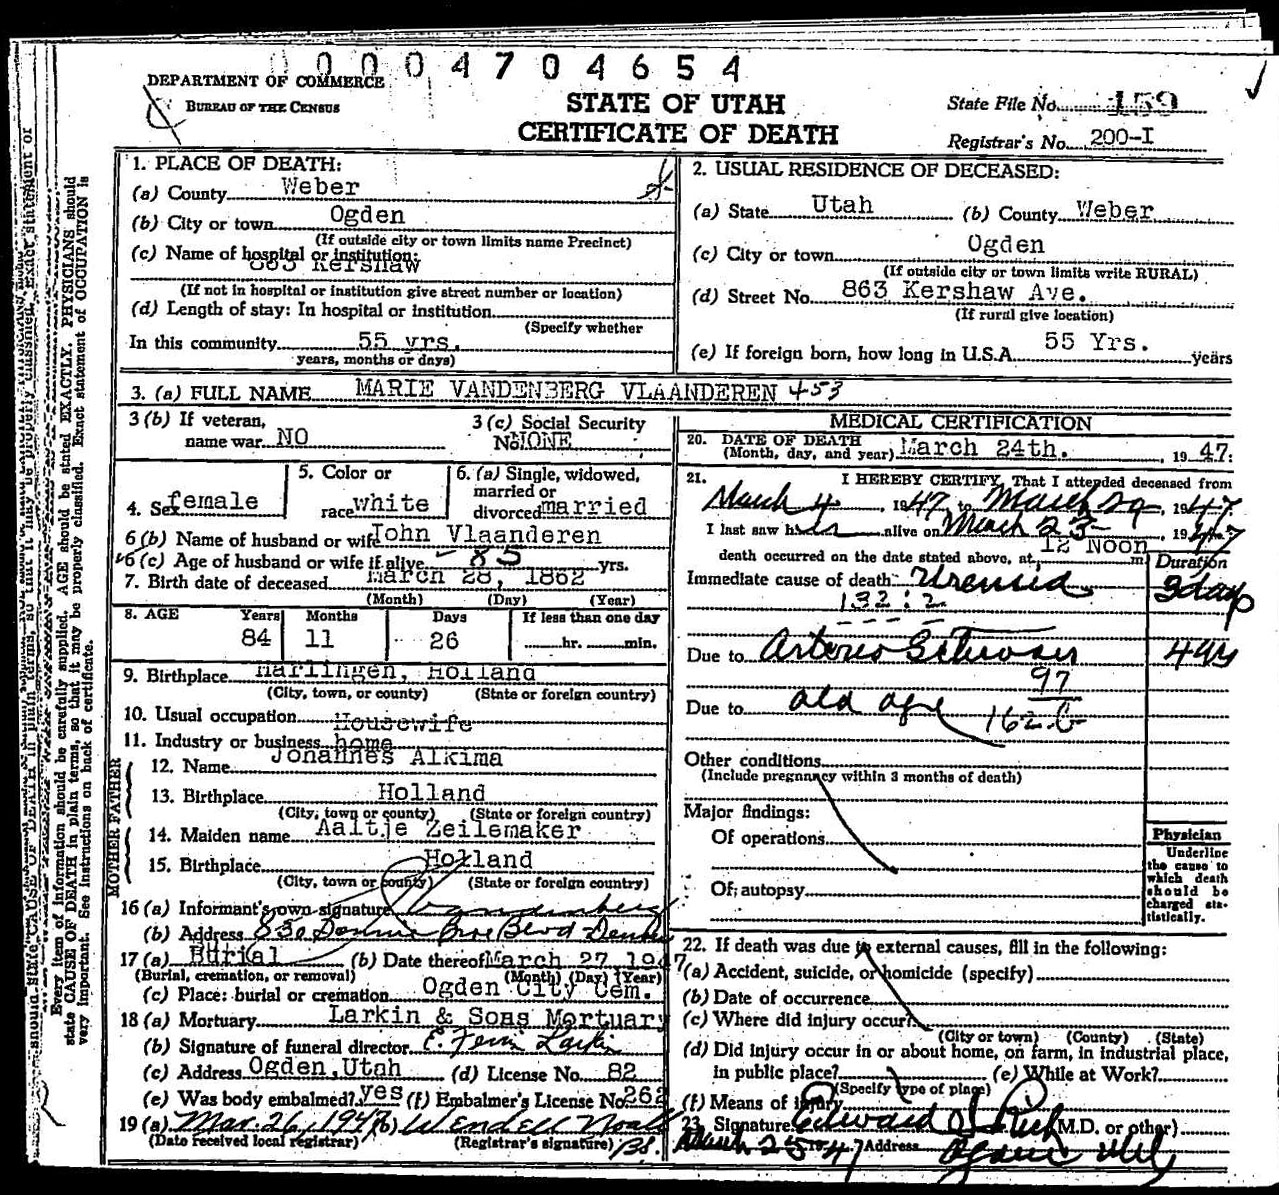 0000 4704654
DEPARTMENT OF COMMERCE
BUREAU OF THE CENSUS
STATE OF UTAH
CERTIFICATE OF DEATH
State File No. 159
Registrar's No. 200-I
1. PLACE OF DEATH:
(a) County Weber
(b) City or town Ogden
(If outside city or town limits name Precinct)
(c) Name of hospital or institution:
863 Kershaw
(If not in hospital or institution give street number or location)
(d) Length of stay: In hospital or institution
(Specify whether
In this community 55 yrs.
years, months or days)
2. USUAL RESIDENCE OF DECEASED:
(a) State Utah (b) County Weber
(c) City or town Ogden
(If outside city or town limits write RURAL)
(d) Street No. 863 Kershaw Ave.
(If rural give location)
(e) If foreign born, how long in U.S.A. 55 Yrs. years
3. (a) FULL NAME MARIE VANDENBERG VLAANDEREN 453
3 (b) If veteran,
name war. NO
3 (c) Social Security
No. NONE
4. Sex female
5. Color or
race white
6. (a) Single, widowed,
married or
divorced married
6 (b) Name of husband or wife John Vlaanderen
6 (c) Age of husband or wife if alive 85 yrs.
7. Birth date of deceased March 28, 1862
(Month) (Day) (Year)
8. AGE Years Months Days If less than one day
84 11 26 hr. min.
9. Birthplace Harlingen, Holland
(City, town, or county) (State or foreign country)
10. Usual occupation Housewife
11. Industry or business home
FATHER
12. Name Johannes Alkima
13. Birthplace Holland
(City, town or county) (State or foreign country)
MOTHER
14. Maiden name Aaltje Zeilemaker
15. Birthplace Holland
(City, town or county) (State or foreign country)
16 (a) Informant's own signature Vandenberg
(b) Address 830 Blvd Denver
17 (a) Burial (b) Date thereof March 27 1947
(Burial, cremation, or removal) (Month) (Day) (Year)
(c) Place: burial or cremation Ogden City Cem.
18 (a) Mortuary Larkin & Sons Mortuary
(b) Signature of funeral director E. Ferrin Larkin
(c) Address Ogden, Utah (d) License No. 82
(e) Was body embalmed? yes (f) Embalmer's License No. 262
19 (a) Mar. 26, 1947 (b) Wendell Noall
(Date received local registrar) (Registrar's signature) Bs.
MEDICAL CERTIFICATION
20. DATE OF DEATH
(Month, day, and year) March 24th. , 19 47.
21. I HEREBY CERTIFY, That I attended deceased from
March 4, 1947 to March 24, 1947
I last saw her alive on March 23, 1947
death occurred on the date stated above, at 12 Noon m
Duration
Immediate cause of death Uremia 3 days
132:2
Due to Arterio Sclerosis 4 yrs
97
Due to old age 162.b
Other conditions
(Include pregnancy within 3 months of death)
Major findings:
Of operations
Of autopsy
Physician
Underline
the cause to
which death
should be
charged sta-
tistically.
22. If death was due to external causes, fill in the following:
(a) Accident, suicide, or homicide (specify)
(b) Date of occurrence
(c) Where did injury occur?
(City or town) (County) (State)
(d) Did injury occur in or about home, on farm, in industrial place,
in public place? (e) While at Work?
(Specify type of place)
(f) Means of injury
23. Signature Edward I. Rich (M.D. or other)
March 25 1947 Address Ogden Utah
Every item of information should be carefully supplied. AGE should be stated EXACTLY. PHYSICIANS should
state CAUSE OF DEATH in plain terms, so that it may be properly classified. Exact statement of OCCUPATION is
very important. See instructions on back of certificate.